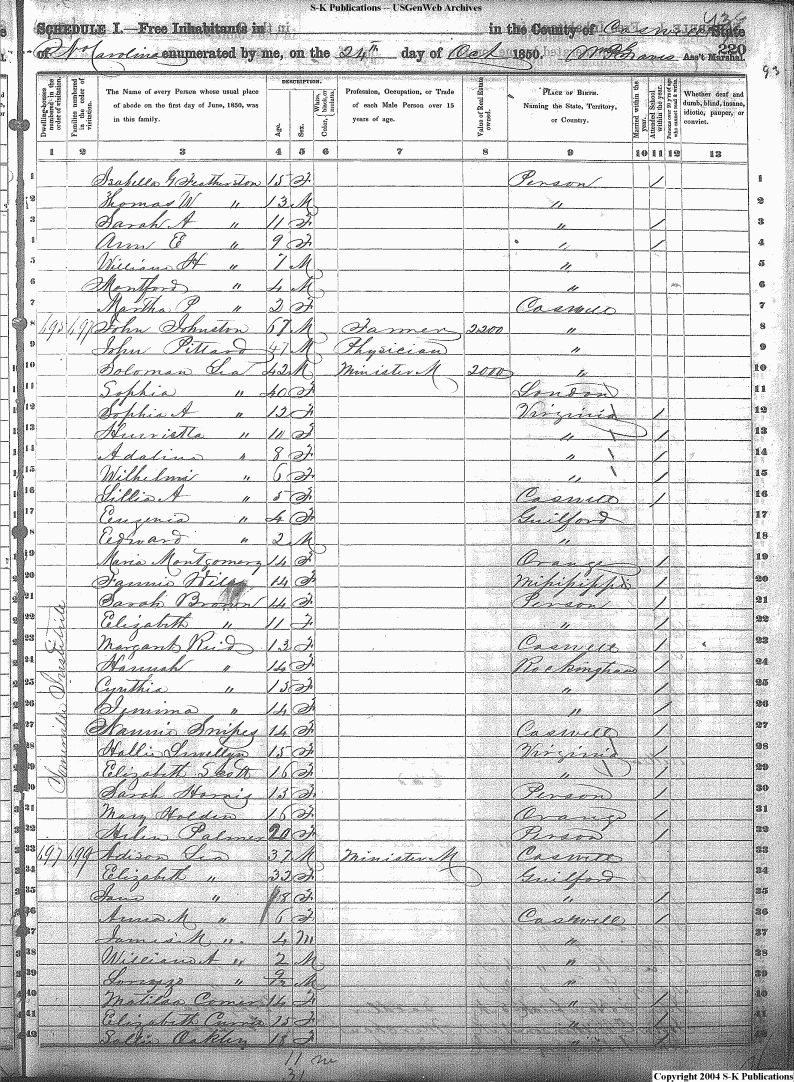 S-K Publications -- USGenWeb Archives
SCHEDULE I.—Free Inhabitants in in the County of Caswell State
of No Carolina enumerated by me, on the 24th day of Oct 1850. Wm P Graves Ass't Marshal.
436
220
93
Dwelling-houses numbered in the order of visitation.
Families numbered in the order of visitation.
The Name of every Person whose usual place of abode on the first day of June, 1850, was in this family.
DESCRIPTION.
Age.
Sex.
Color, White, black, or mulatto.
Profession, Occupation, or Trade of each Male Person over 15 years of age.
Value of Real Estate owned.
PLACE OF BIRTH. Naming the State, Territory, or Country.
Married within the year.
Attended School within the year.
Persons over 20 y'rs of age who cannot read & write.
Whether deaf and dumb, blind, insane, idiotic, pauper, or convict.
1 2 3 4 5 6 7 8 9 10 11 12 13
1 Isabella G Featherston 15 F Person / 1
2 Thomas W " 13 M " 2
3 Sarah A " 11 F " / 3
4 Ann E " 9 F " / 4
5 William H " 7 M " 5
6 Montford " 4 M " 6
7 Martha P " 2 F Caswell 7
8 695 697 John Johnston 67 M Farmer 2200 " 8
9 John Pittard 47 M Physician " 9
10 Soloman Lea 42 M Minister M 2000 " 10
11 Sophia " 40 F London 11
12 Sophia A " 12 F Virginia / 12
13 Hurristta " 10 F " / 13
14 Adalina " 8 F " / 14
15 Wilhelmi " 6 F " / 15
16 Lillia A " 5 F Caswell / 16
17 Eugenia " 4 F Guilford 17
18 Edward " 2 M " 18
19 Maria Montgomery 14 F Orange / 19
20 Fannie 14 F Mississippi / 20
21 Sarah Brown 14 F Person / 21
22 Elizabeth " 11 F " / 22
23 Margant Reid 13 F Caswell / 23
24 Hannah " 14 F Rockingham / 24
25 Cynthia " 15 F " / 25
26 Jemima " 14 F " / 26
27 Nannie Snipes 14 F Caswell / 27
28 Hallie Lewellyn 15 F Virginia / 28
29 Elizabeth Scott 16 F " / 29
30 Sarah Harris 13 F Person / 30
31 Mary Holden 16 F Orange / 31
32 Helen Palmer 20 F Person / 32
Somerville Institute
33 697 699 Adison Lea 37 M Minister M Caswell 33
34 Elizabeth " 33 F Guilford 34
35 Jane " 8 F " / 35
36 Anna M " 6 F Caswell / 36
37 James M " 4 M " 37
38 William A " 2 M " 38
39 Lorenzo " 9/12 M " 39
40 Matilda Comer 14 F " / 40
41 Elizabeth Currie 15 F " / 41
42 Sallie Oakley 18 F " / 42
11 m
31
Copyright 2004 S-K Publications